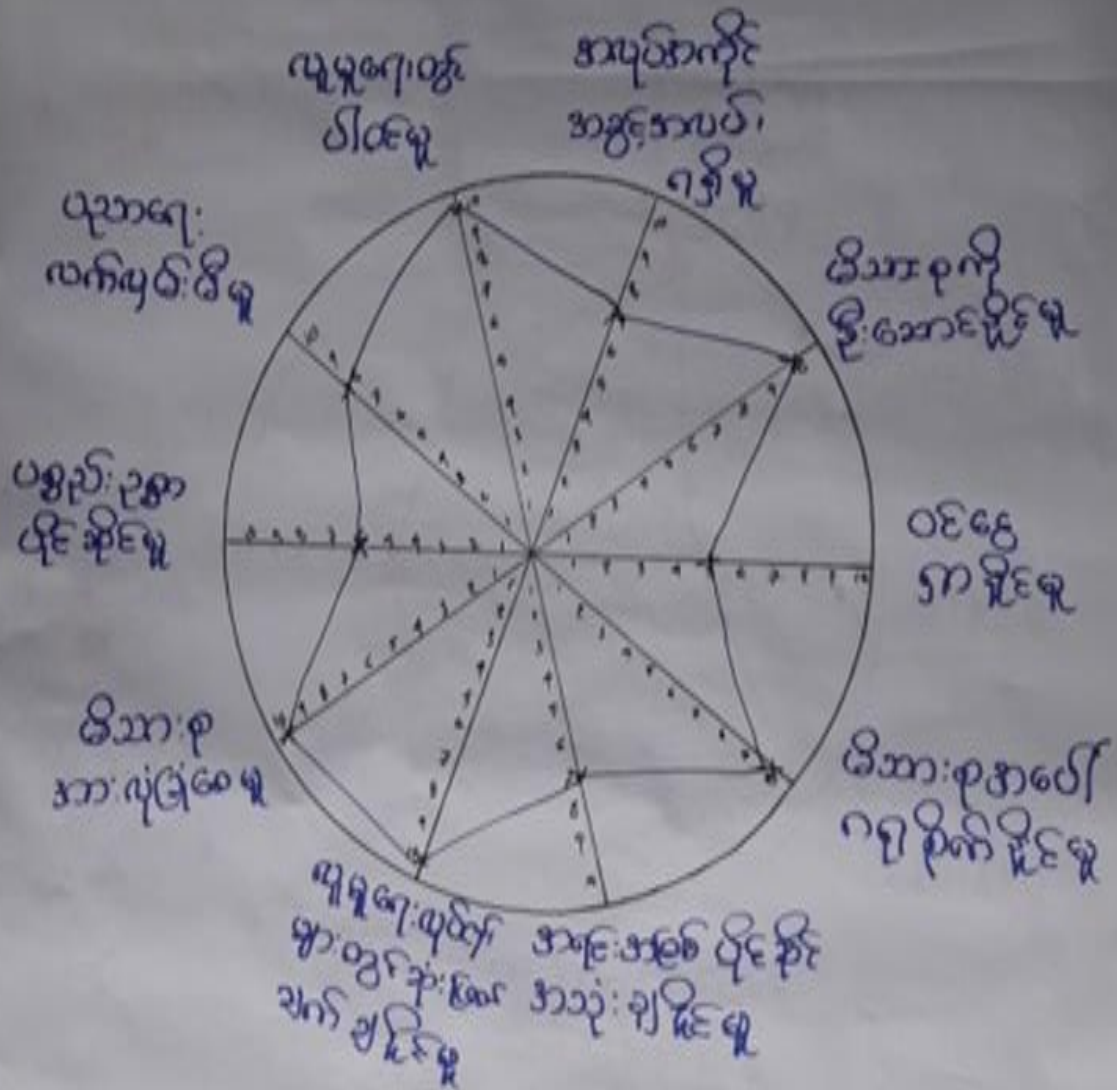 လူမှုရေးတွင်
ပါဝင်မှု
အလုပ်အကိုင်
အခွင့်အလမ်း
ရရှိမှု
မိသားစုကို
ဦးဆောင်နိုင်မှု
ဝင်ငွေ
ရှာနိုင်မှု
မိသားစုအပေါ်
ဂရုစိုက်နိုင်မှု
အရင်းအမြစ် ပိုင်ဆိုင်
အသုံးချနိုင်မှု
လူမှုရေးလုပ်ငန်း
များတွင်ဆုံးဖြတ်
ချက်ချနိုင်မှု
မိသားစု
အားလုံခြုံစေမှု
ပစ္စည်းဥစ္စာ
ပိုင်ဆိုင်မှု
ပညာရေး
လက်လှမ်းမီမှု